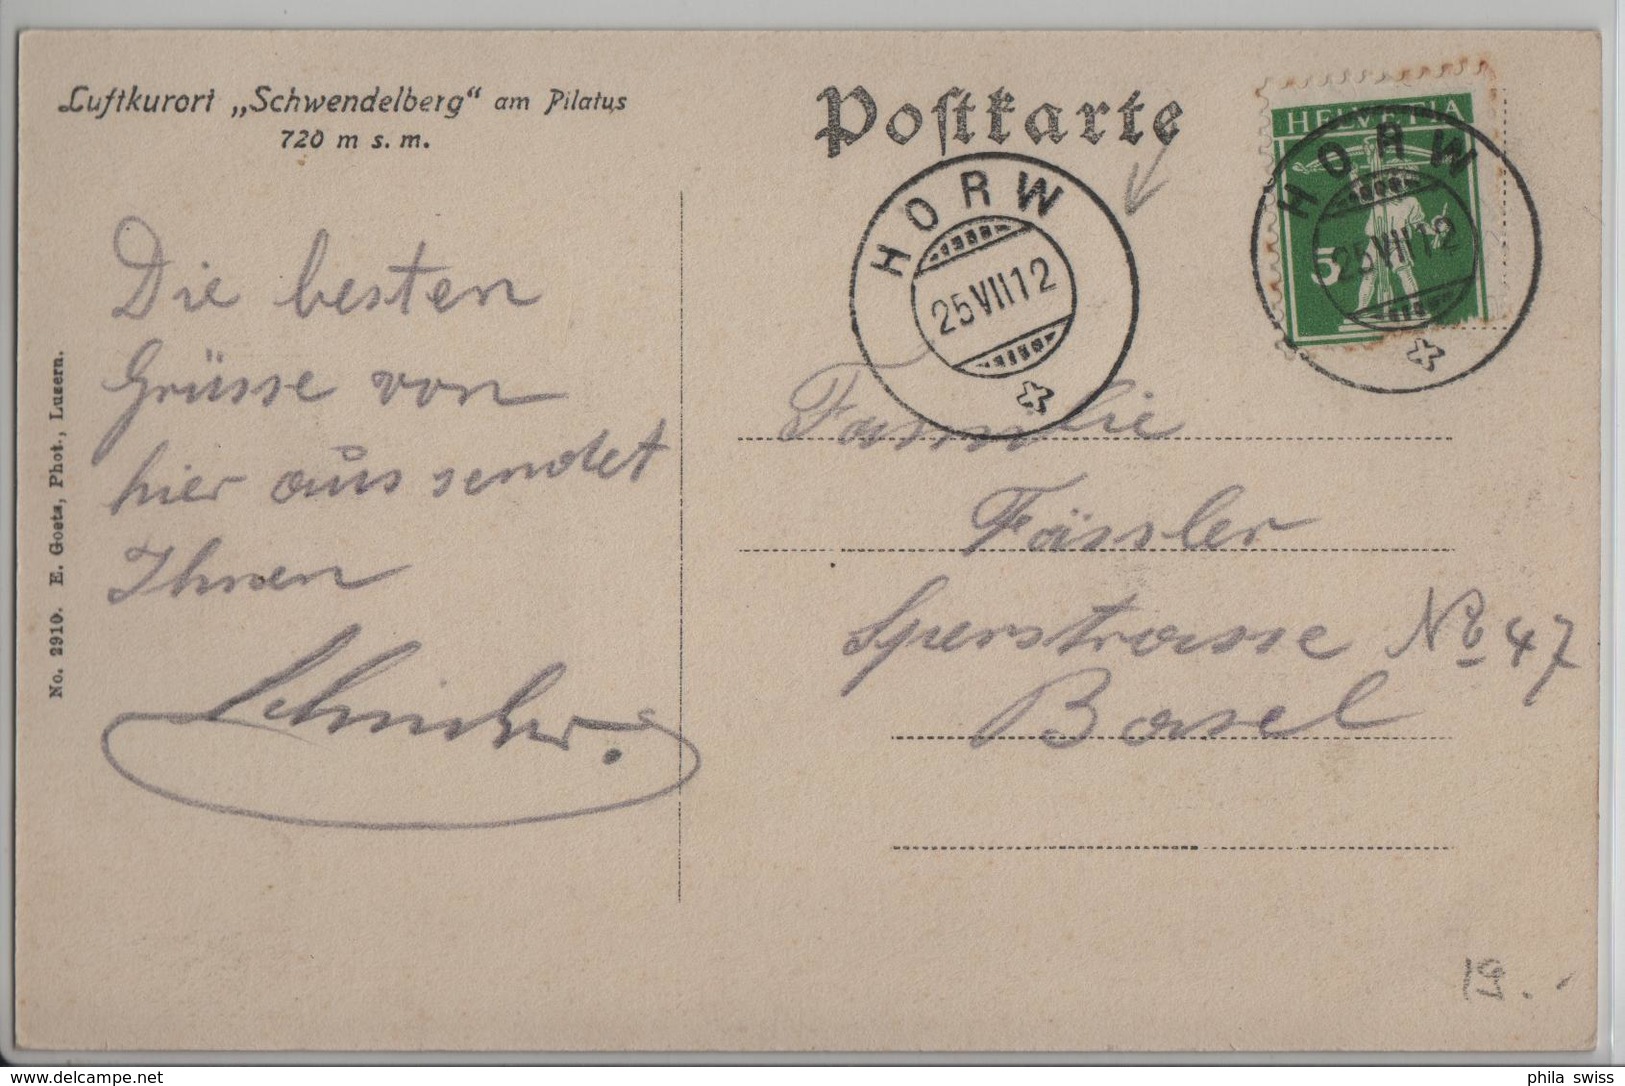 Luftkurort „Schwendelberg“ am Pilatus
720 m s. m.
Poſtkarte
HELVETIA
5
HORW
25 VII 12
HORW
25 VII 12
Die besten
Grüsse von
hier aus sendet
Ihnen
No. 2910. E. Goetz, Phot., Luzern.
Familie
Fässler
Sperstrasse No 47
Basel
19.-
phila swiss